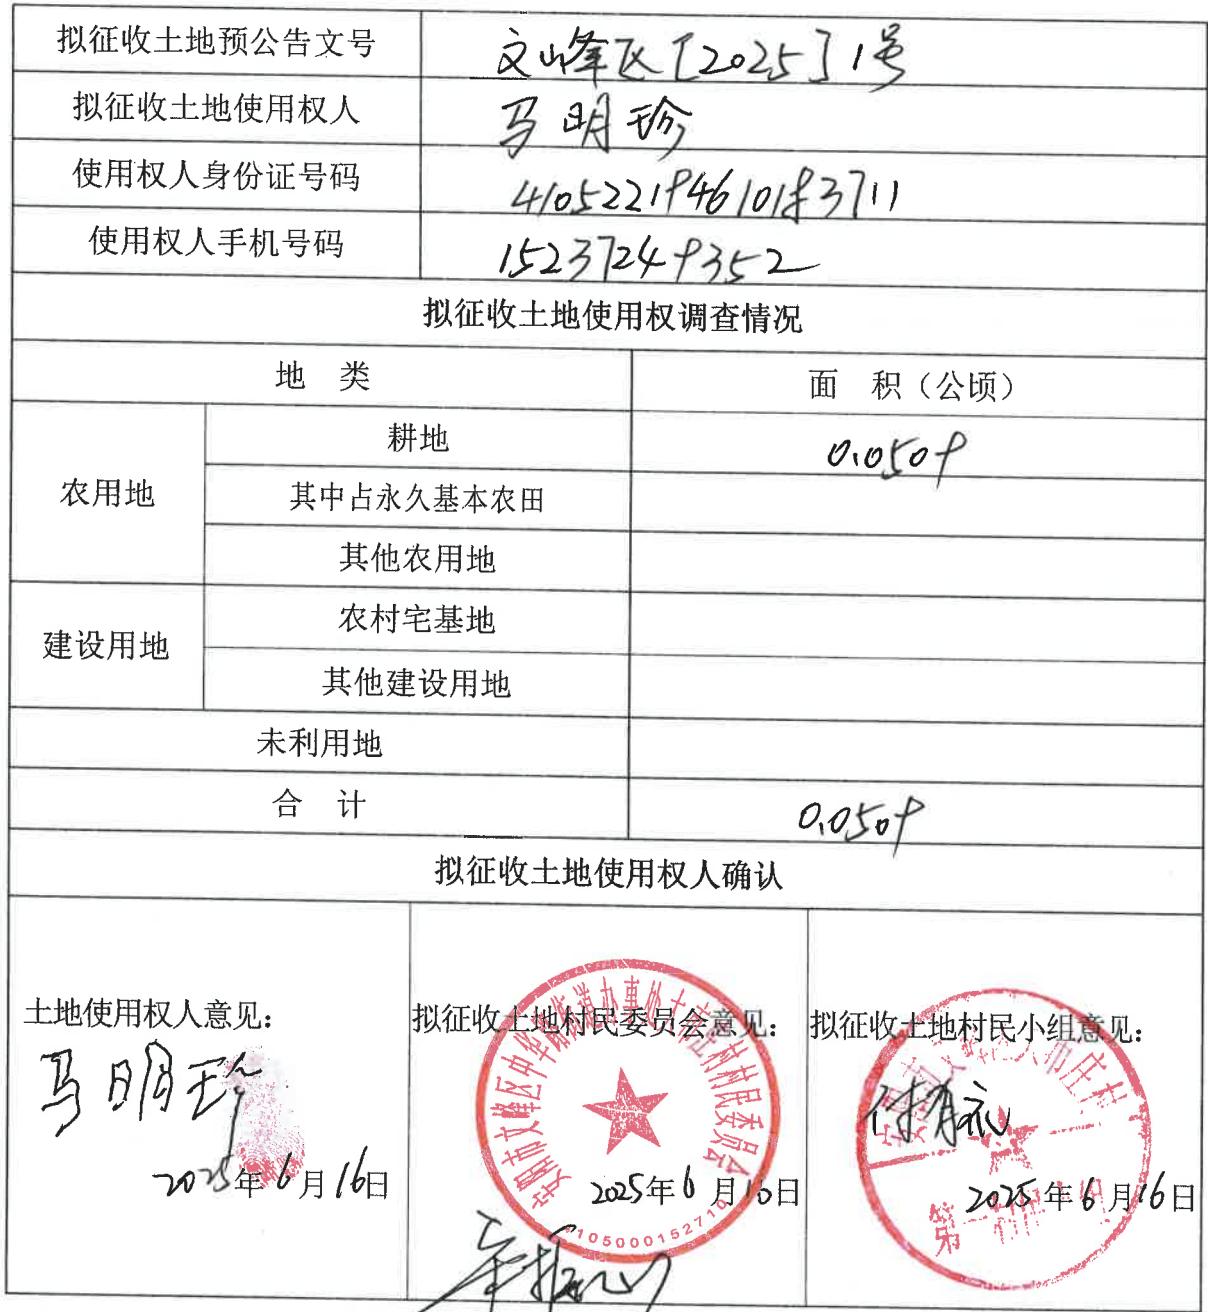 拟征收土地预公告文号 文峰区[2025]1号
拟征收土地使用权人 马明珍
使用权人身份证号码
使用权人手机号码 15237249352
拟征收土地使用权调查情况
地 类 面 积（公顷）
农用地 耕地 0.0509
其中占永久基本农田
其他农用地
建设用地 农村宅基地
其他建设用地
未利用地
合 计 0.0509
拟征收土地使用权人确认
土地使用权人意见：
马明珍
2025年6月16日
拟征收土地村民委员会意见：
安阳市文峰区中华路街道办事处大市庄村村民委员会
2025年6月16日
4105000152710
拟征收土地村民小组意见：
2025年6月16日